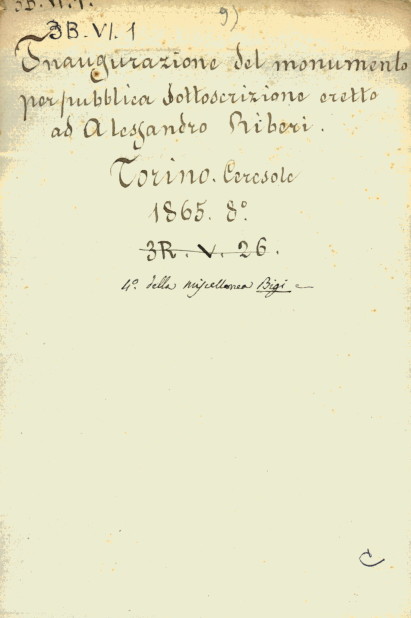 3B. VI. 1.
9)
3B. VI. 1
Inaugurazione del monumento
per pubblica sottoscrizione eretto
ad Alessandro Riberi.
Torino. Ceresole
1865. 8°.
3R. V. 26.
4°. della miscellanea Bigi =
C